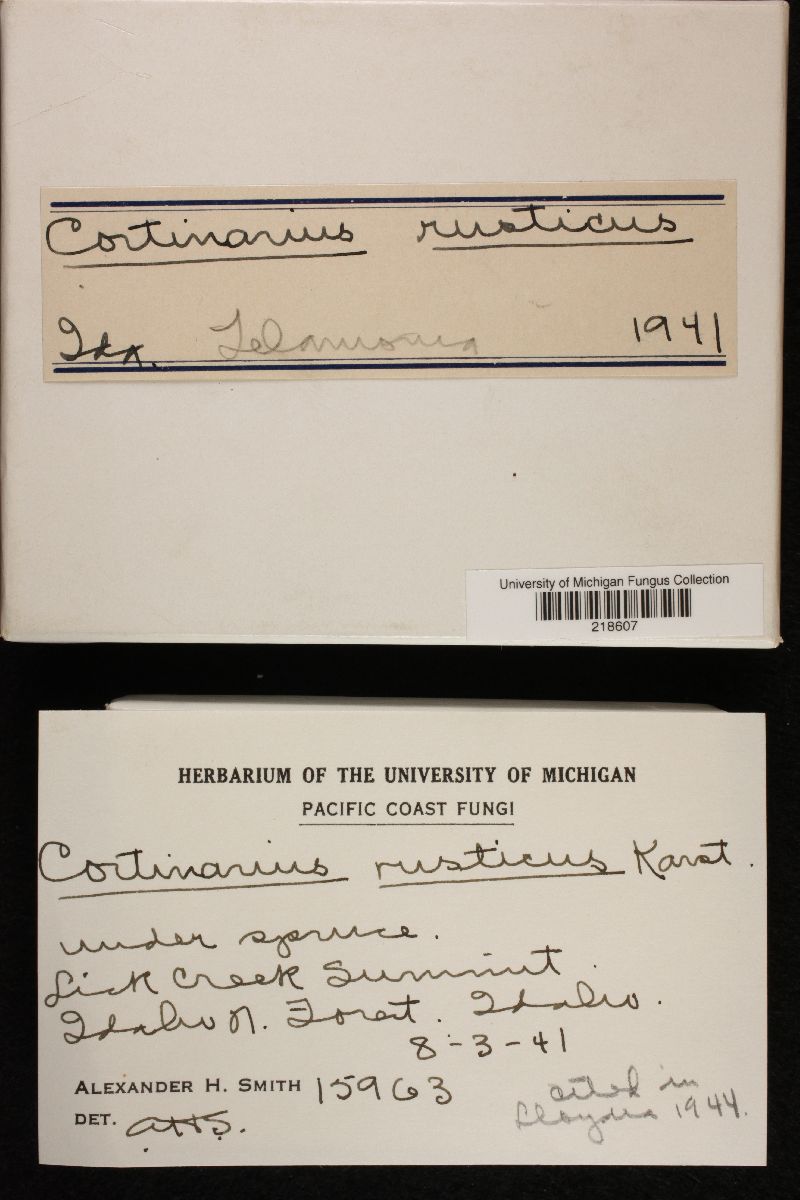 Cortinarius rusticus
Ida. Telamonia 1941
University of Michigan Fungus Collection
218607
HERBARIUM OF THE UNIVERSITY OF MICHIGAN
PACIFIC COAST FUNGI
Cortinarius rusticus Karst.
under spruce.
Lick Creek Summit.
Idaho N. Forest. Idaho.
8-3-41
ALEXANDER H. SMITH 15963
DET. AHS.
cited in
Lloydia 1944.